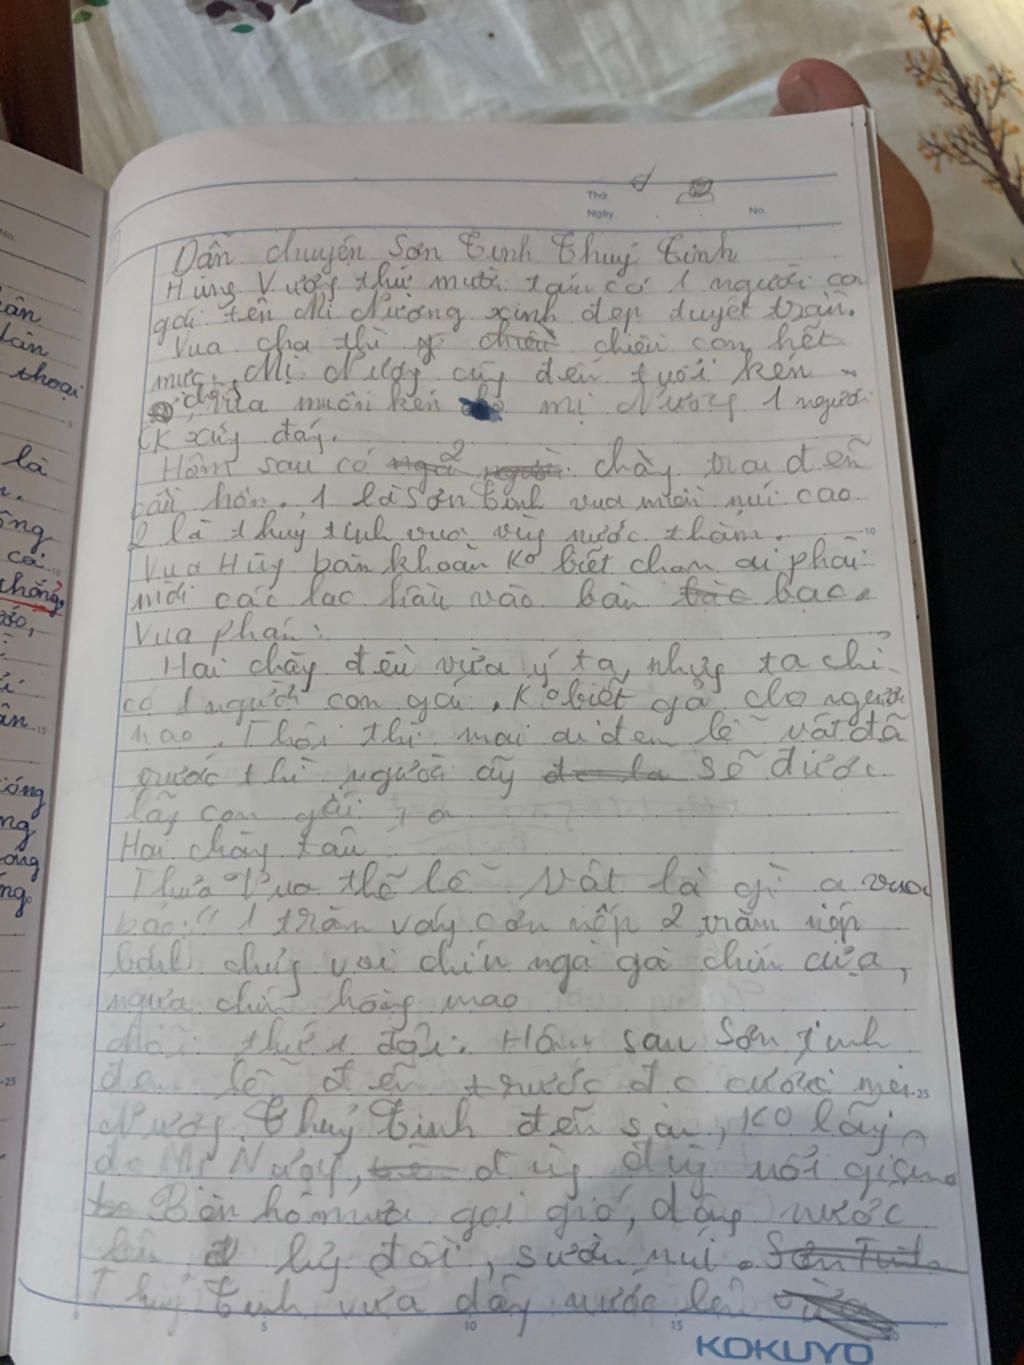 Thứ
Ngày
No.
Dẫn chuyện Sơn Tinh Thuỷ Tinh
Hùng Vương thứ mười tám có 1 người con
gái tên Mị Nương xinh đẹp duyệt trần.
Vua cha thì chiều con hết
mực. Mị Nươg cũg đến tuổi kén
chồg, Vua muốn kén mị Nươg 1 người
CK xứg đág.
Hôm sau có 2 chàg trai đến
cầu hôn. 1 là Sơn Tinh vua miền núi cao
2 là thuỷ tinh vua vùg nước thẳm.
Vua Hùg băn khoăn ko biết chọn ai phải
mời các lạc hầu vào bàn bạc.
Vua phán:
Hai chàg đều vừa ý ta, nhưg ta chỉ
có 1 người con gái, ko biết gả cho người
nào. Thôi thì mai ai đem lễ vật đến
trước thì người ấy sẽ được
lấy con gái ta
Hai chàg tâu
Thưa Vua thế lễ vật là gì ạ vua
bảo: " 1 trăm ván cơm nếp 2 trăm nếp
bánh chưg voi chín ngà gà chín cựa,
ngựa chín hồg mao
mỗi thứ 1 đôi. Hôm sau Sơn Tinh
đem lễ đến trước đc cưới mị
Nươg. Thuỷ Tinh đến sau, ko lấy
đc Mị Nươg, đùg đùg nổi giận
Bèn hô mưa gọi gió, dâg nước
lên lưg đồi, sườn núi.
Thuỷ Tinh vừa dâg nước lên
KOKUYO
ân
tân
thoại
là
ông
cái
thắng,
ân
óng
ng